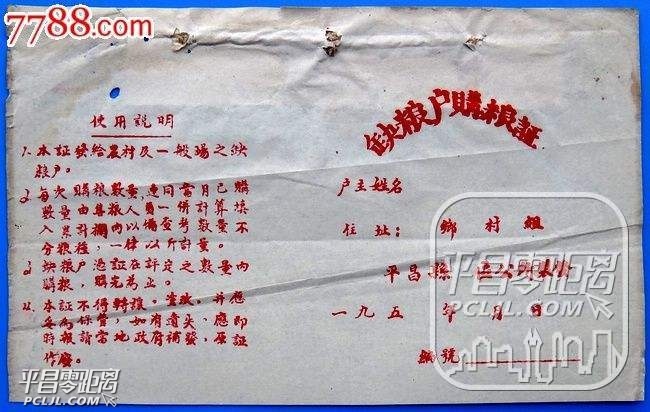 7788.com
使用説明
1. 本証發給農村及一般場之缺
粮户。
2. 每次購粮数量,連同當月已購
数量由售粮人員一併計算填
入累計欄内以備查考数量不
分粮種,一律以斤計量。
3. 缺粮户憑証在評定之数量内
購粮,購完為止。
本証不得轉讓。塗改,并應
妥為保管,如有遺失,應即
時報請當地政府補發,原証
作廢。
缺粮户購粮証
户主姓名
住址: 鄉 村 組
平昌縣 區公所
一九五 年 月 日
編號
平昌零距离
PCLJL.COM
平昌零距离
PCLJL.COM